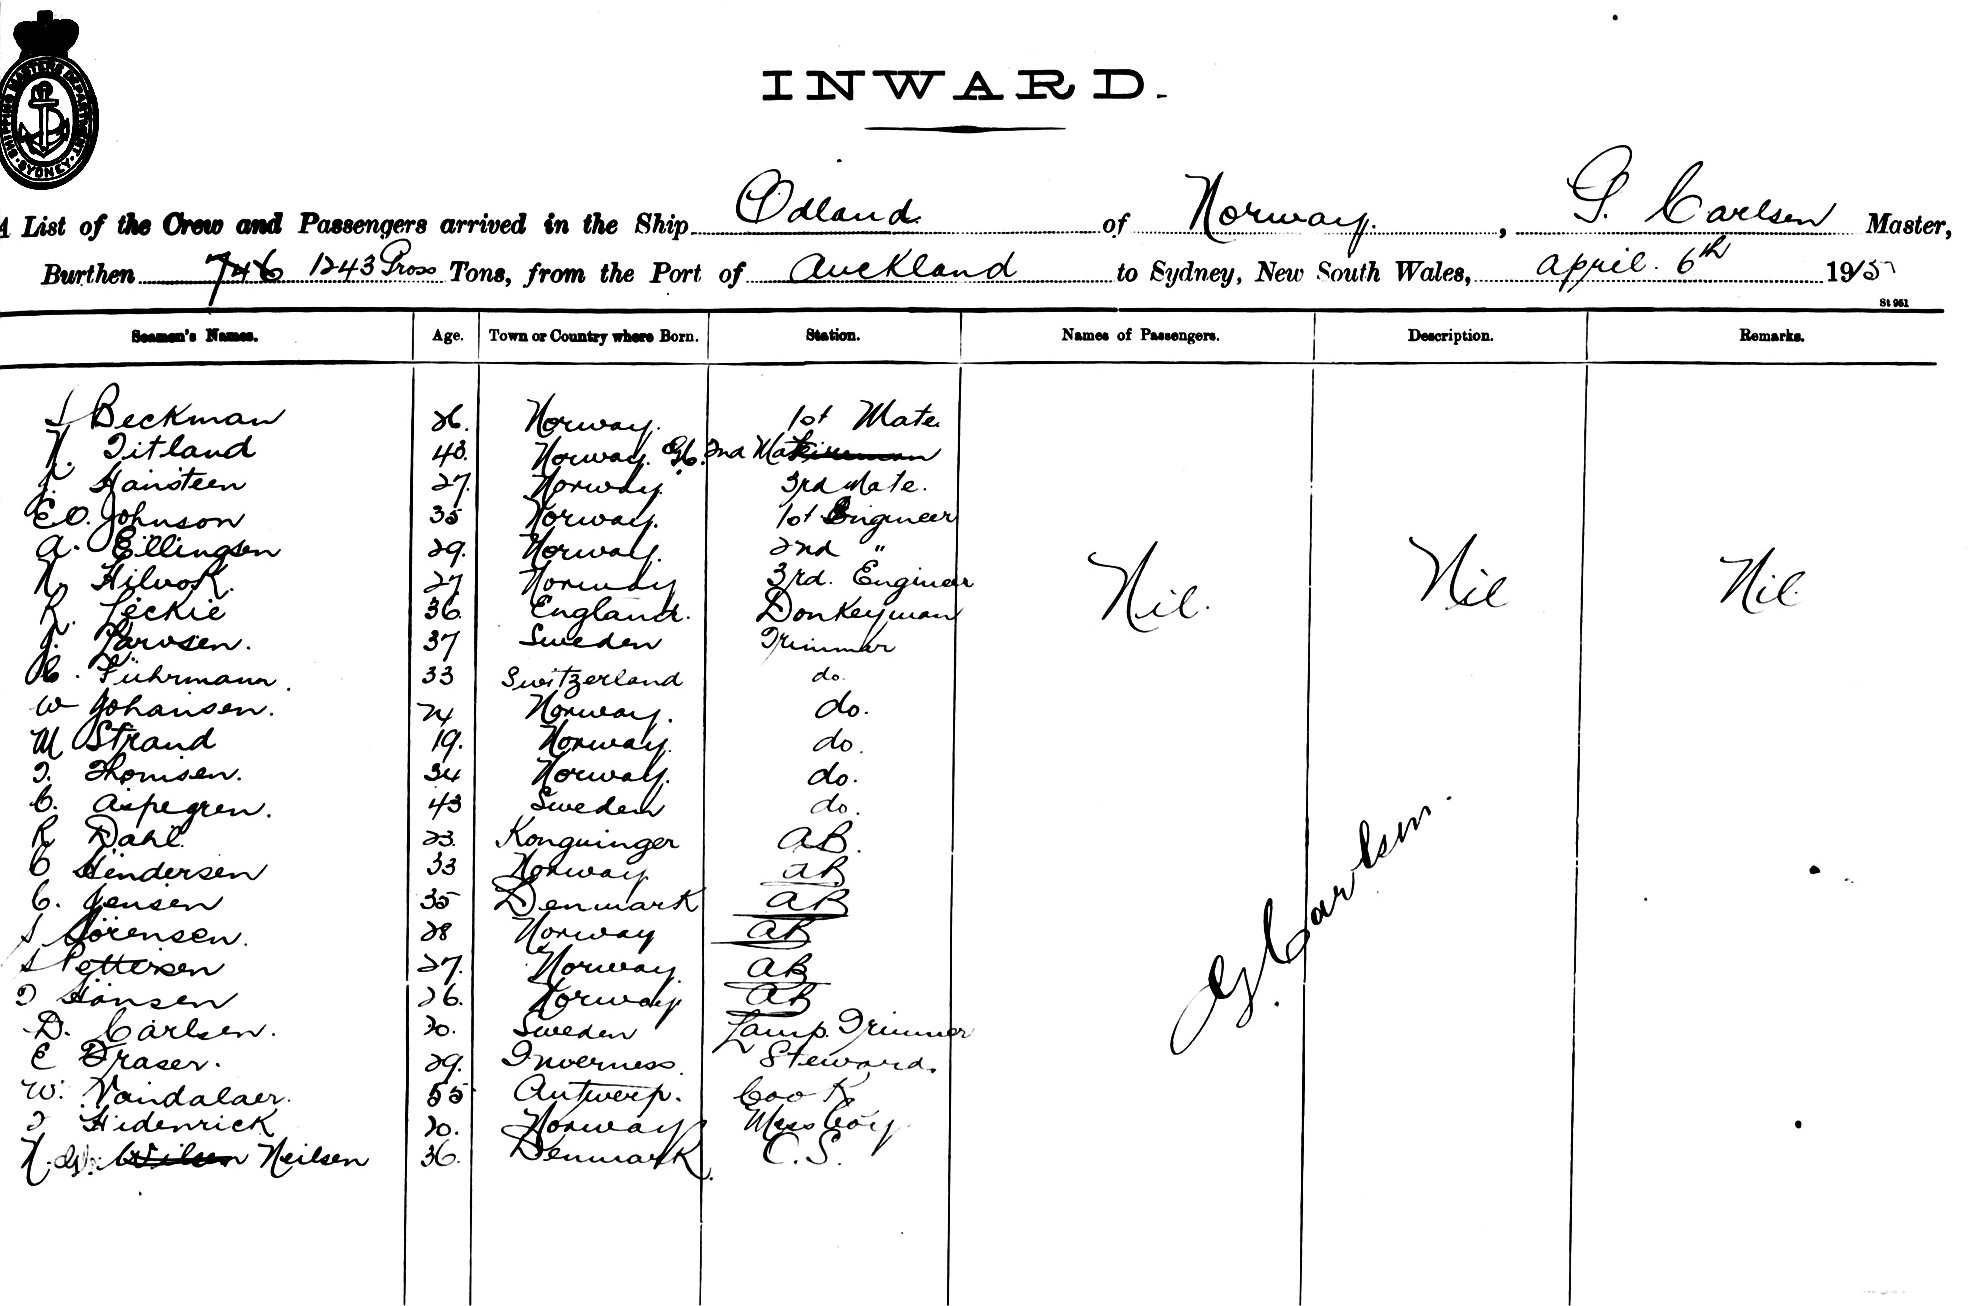 SHIPPING MASTERS DEPARTMENT
SYDNEY
INWARD.
A List of the Crew and Passengers arrived in the Ship Odland. of Norway. , G. Carlsen Master,
Burthen 746 1243 Gross Tons, from the Port of Auckland to Sydney, New South Wales, April. 6th 1915
St 951
Seamen's Names. Age. Town or Country where Born. Station. Names of Passengers. Description. Remarks.
Beckman 26. Norway. 1st Mate.
N. Titland 43. Norway. 2nd Mate
Hansteen 27. Norway. 3rd Mate.
E O. Johnson 35 Norway. 1st Engineer
A. Ellingsen 29. Norway. 2nd "
27 Norway 3rd. Engineer
R. Leckie 36. England. Donkeyman
Larvsen. 37 Sweden Trimmer
Fuhrmann. 33 Switzerland do.
W Johansen. 24 Norway. do.
M Strand 19. Norway. do.
T. Thomsen. 34 Norway. do.
C. Aspegren. 43 Sweden do.
R Dahl. 23. Kongvinger AB.
C Hendersen 33 Norway AB
C. Jensen 35 Denmark AB
S Sörensen. 28 Norway AB
S Pettersen 27. Norway. AB
T Hansen 26. Norway AB
D. Carlsen. 20. Sweden Lamp. Trimmer
E Fraser. 29. Inverness. Steward.
W. Vandalaer. 55 Antwerp. Cook
T Hidenrick 20. Norway Mess boy
N. Neilsen 36. Denmark. O.S.
Nil. Nil Nil.
G. Carlsen.